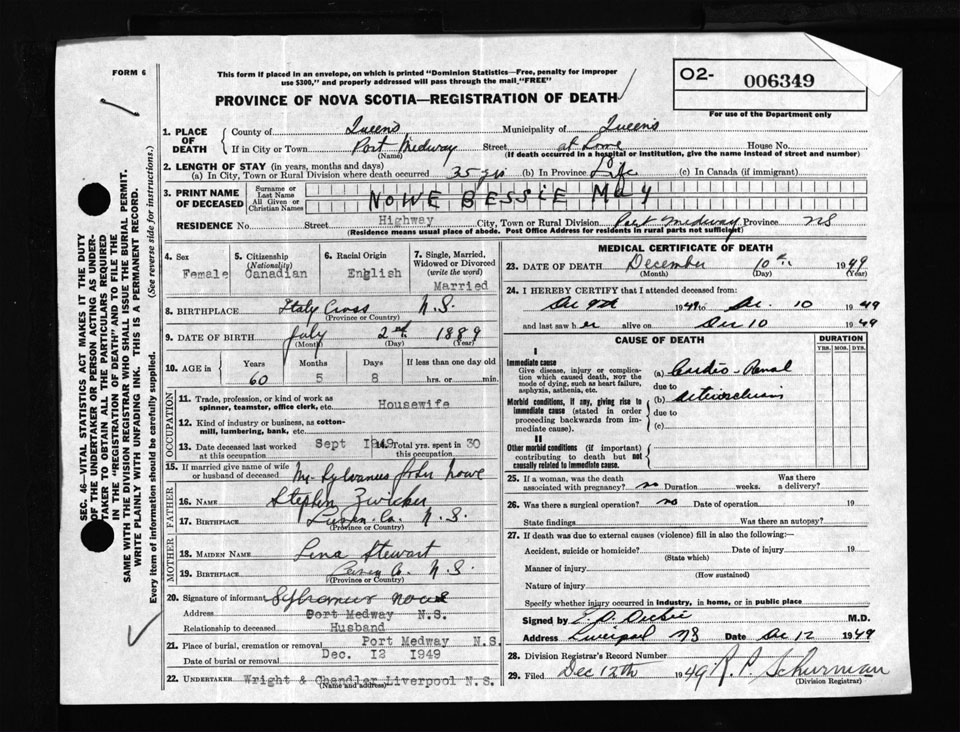 FORM 6
This form if placed in an envelope, on which is printed "Dominion Statistics—Free, penalty for improper
use $300," and properly addressed will pass through the mail "FREE"
O2- 006349
For use of the Department only
PROVINCE OF NOVA SCOTIA—REGISTRATION OF DEATH
1. PLACE OF DEATH
County of Queens Municipality of Queens
If in City or Town Port Medway Street at home House No.
(Name) (If death occurred in a hospital or institution, give the name instead of street and number)
2. LENGTH OF STAY (in years, months and days)
(a) In City, Town or Rural Division where death occurred 35 yrs (b) In Province Life (c) In Canada (if immigrant)
3. PRINT NAME OF DECEASED
Surname or Last Name
All Given or Christian Names
NOWE BESSIE MAY
RESIDENCE No. Street Highway City, Town or Rural Division Port Medway Province NS
(Residence means usual place of abode. Post Office Address for residents in rural parts not sufficient)
4. Sex
Female
5. Citizenship (Nationality)
Canadian
6. Racial Origin
English
7. Single, Married, Widowed or Divorced (write the word)
Married
8. BIRTHPLACE Italy Cross N.S.
(Province or Country)
9. DATE OF BIRTH July 2nd 1889
(Month) (Day) (Year)
10. AGE in Years Months Days If less than one day old
60 5 8 hrs. or min.
OCCUPATION
11. Trade, profession, or kind of work as spinner, teamster, office clerk, etc. Housewife
12. Kind of industry or business, as cotton-mill, lumbering, bank, etc.
13. Date deceased last worked at this occupation Sept 1949
14. Total yrs. spent in this occupation 30
15. If married give name of wife or husband of deceased Mr. Sylvanus John Nowe
FATHER
16. NAME Stephen Zwicker
17. BIRTHPLACE Lunen. Co. N.S.
(Province or Country)
MOTHER
18. MAIDEN NAME Lena Stewart
19. BIRTHPLACE Co. N.S.
(Province or Country)
20. Signature of informant Sylvanus Nowe
Address Port Medway N.S.
Relationship to deceased Husband
21. Place of burial, cremation or removal Port Medway N.S.
Date of burial or removal Dec. 12 1949
22. UNDERTAKER Wright & Chandler Liverpool N.S.
(Name and address)
MEDICAL CERTIFICATE OF DEATH
23. DATE OF DEATH December 10th 1949
(Month) (Day) (Year)
24. I HEREBY CERTIFY that I attended deceased from:
Dec 9th 1949 to Dec. 10 1949
and last saw her alive on Dec 10 1949
CAUSE OF DEATH
DURATION
YRS. MOS. DYS.
I
Immediate cause
Give disease, injury or complication which caused death, not the mode of dying, such as heart failure, asphyxia, asthenia, etc.
(a) Cardio-Renal
due to
Morbid conditions, if any, giving rise to immediate cause (stated in order proceeding backwards from immediate cause).
(b)
due to
(c)
II
Other morbid conditions (if important) contributing to death but not causally related to immediate cause.
25. If a woman, was the death associated with pregnancy? no Duration weeks. Was there a delivery?
26. Was there a surgical operation? no Date of operation 19
State findings Was there an autopsy?
27. If death was due to external causes (violence) fill in also the following:—
Accident, suicide or homicide? Date of injury 19
(State which)
Manner of injury
(How sustained)
Nature of injury
Specify whether injury occurred in industry, in home, or in public place
Signed by M.D.
Address Liverpool NS Date Dec 12 1949
28. Division Registrar's Record Number
29. Filed Dec 12th 1949 R. P. Schurman
(Division Registrar)
SEC. 46—VITAL STATISTICS ACT MAKES IT THE DUTY
OF THE UNDERTAKER OR PERSON ACTING AS UNDER-
TAKER TO OBTAIN ALL THE PARTICULARS REQUIRED
IN THE "REGISTRATION OF DEATH" AND TO FILE THE
SAME WITH THE DIVISION REGISTRAR WHO SHALL ISSUE THE BURIAL PERMIT.
WRITE PLAINLY WITH UNFADING INK. THIS IS A PERMANENT RECORD.
Every item of information should be carefully supplied. (See reverse side for instructions.)